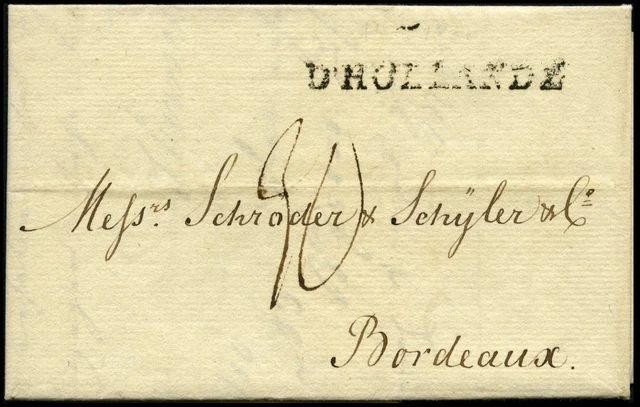 D'HOLLANDE
Messrs Schroder & Schÿler & Co
30
Bordeaux.